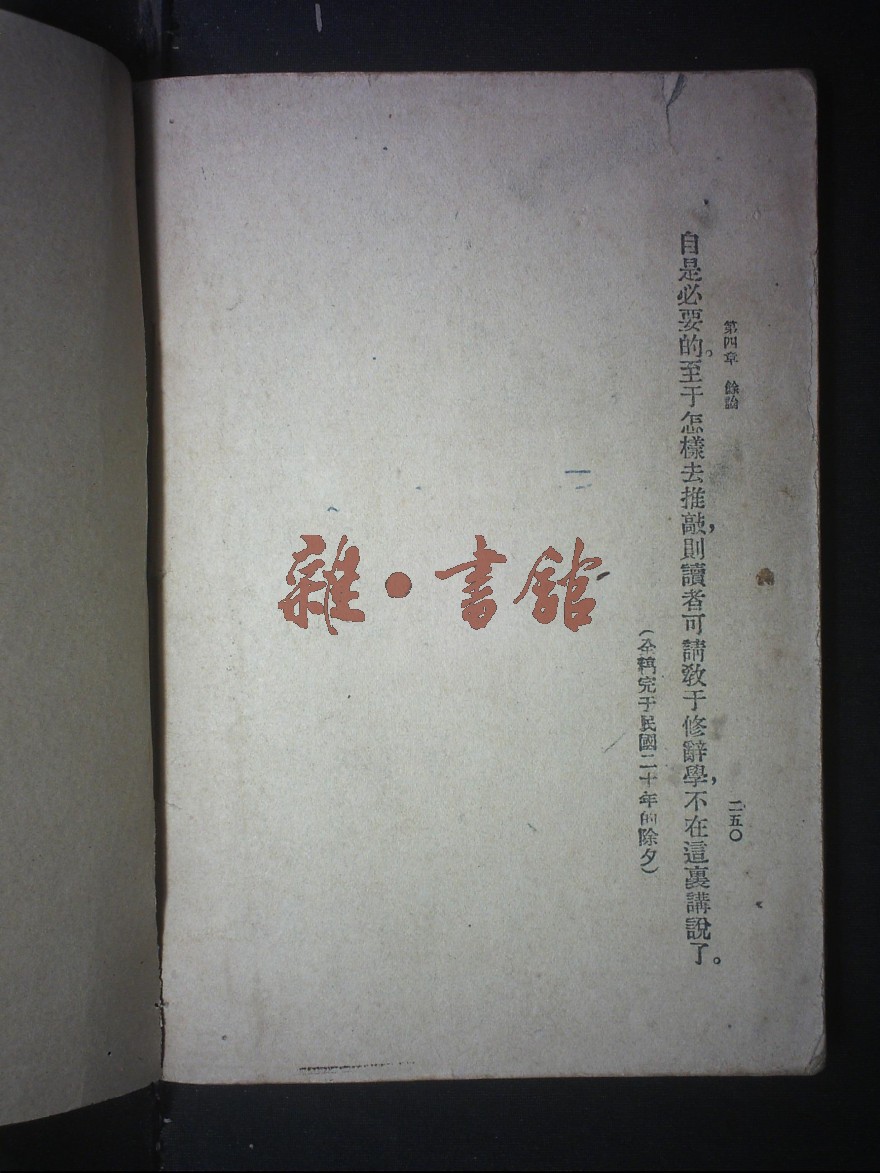 第四章 餘論
二五〇
自是必要的。至于怎樣去推敲，則讀者可請敎于修辭學，不在這裏講說了。
（全稿完于民國二十年的除夕）
雜·書館